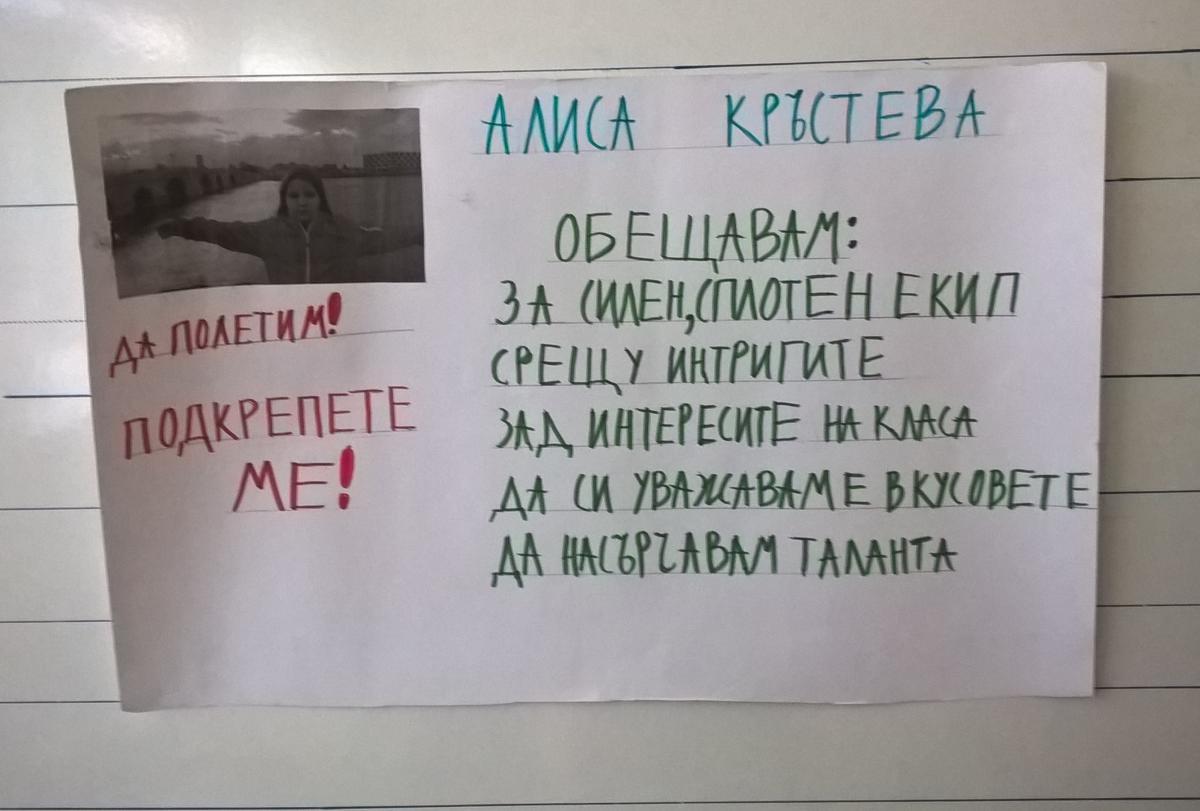 АЛИСА КРЪСТЕВА
ОБЕЩАВАМ:
ЗА СИЛЕН,СПЛОТЕН ЕКИП
СРЕЩУ ИНТРИГИТЕ
ЗАД ИНТЕРЕСИТЕ НА КЛАСА
ДА СИ УВАЖАВАМЕ ВКУСОВЕТЕ
ДА НАСЪРЧАВАМ ТАЛАНТА
ДА ПОЛЕТИМ!
ПОДКРЕПЕТЕ
МЕ!